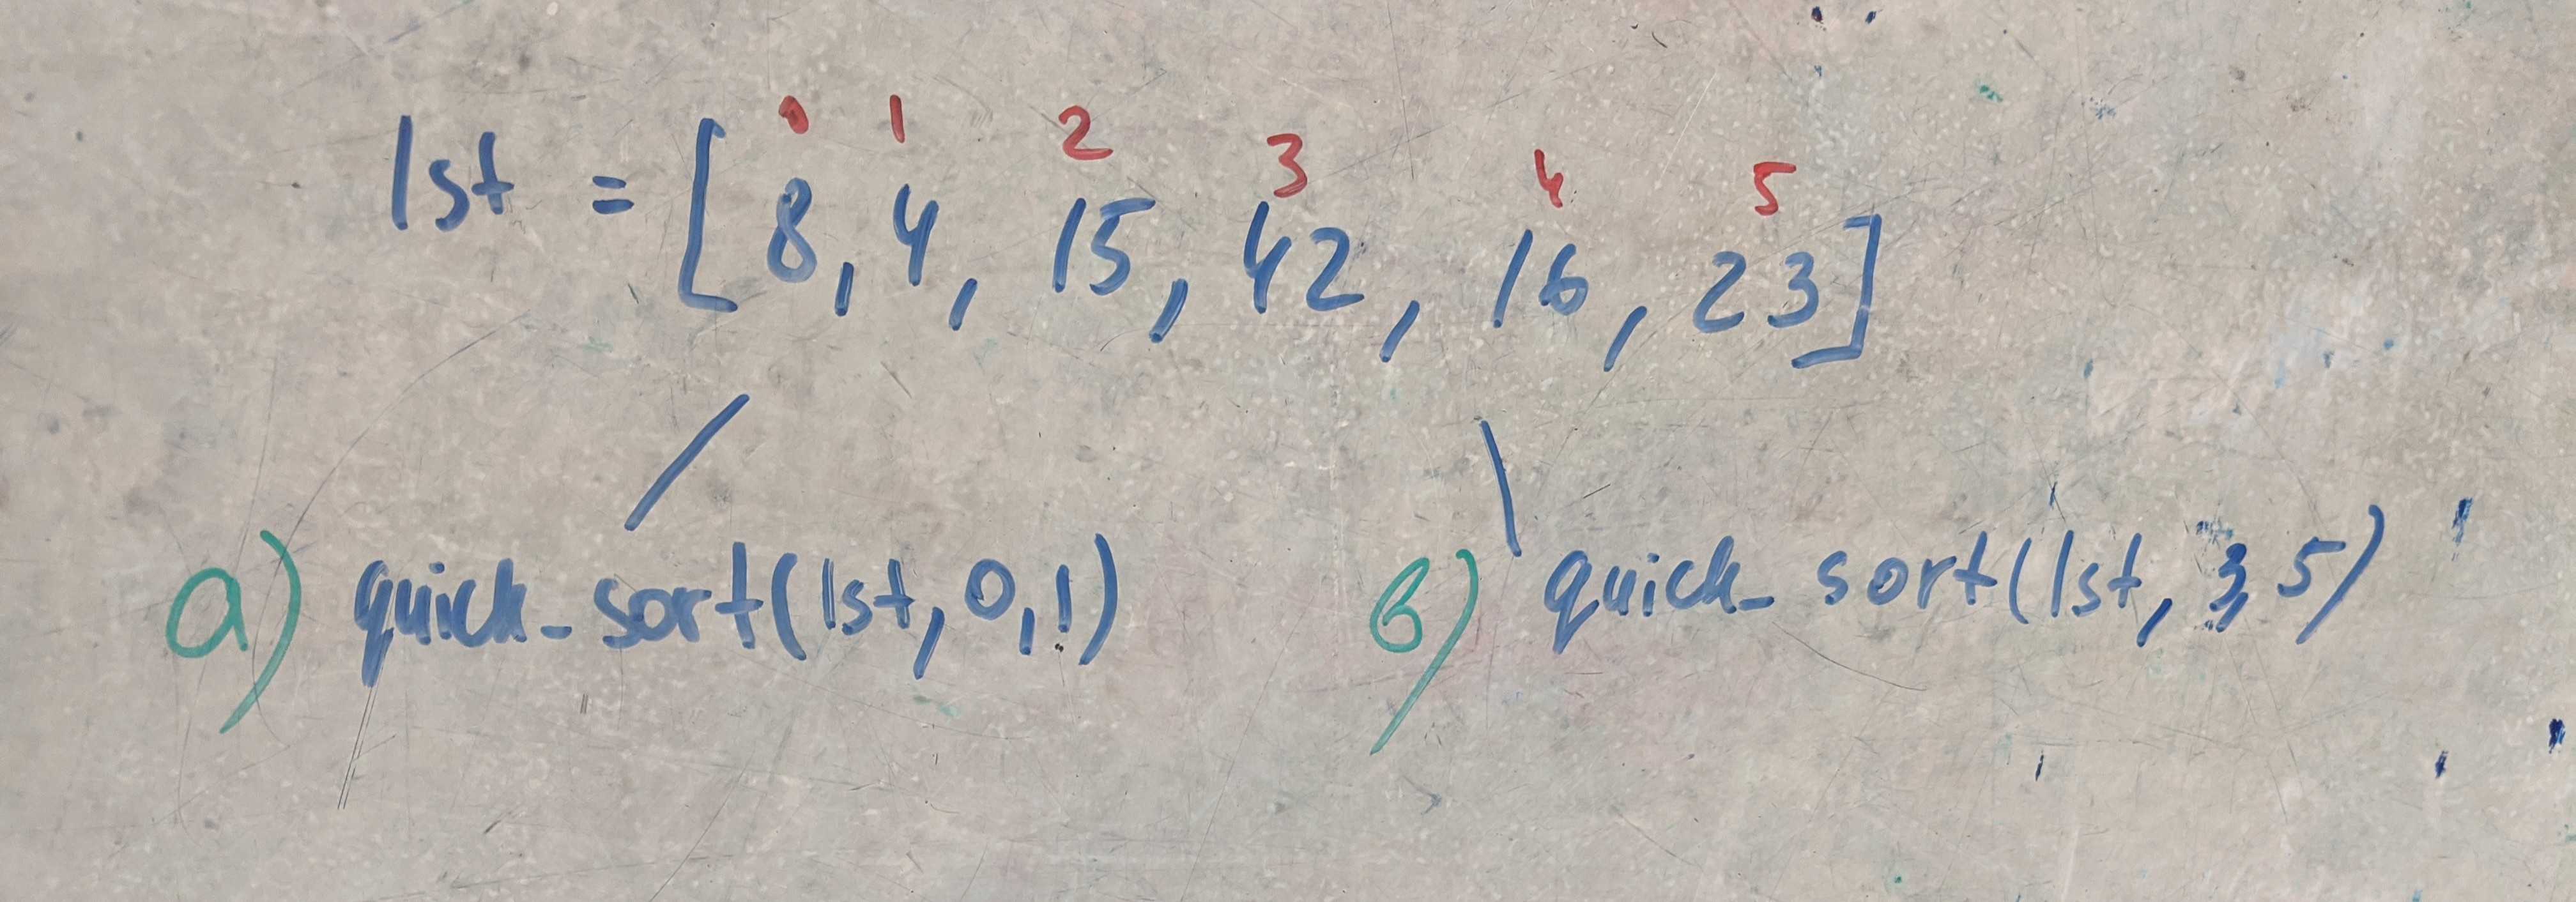 0 1 2 3 4 5
lst = [8, 4, 15, 42, 16, 23]
a) quick_sort(lst, 0, 1) б) quick_sort(lst, 3, 5)